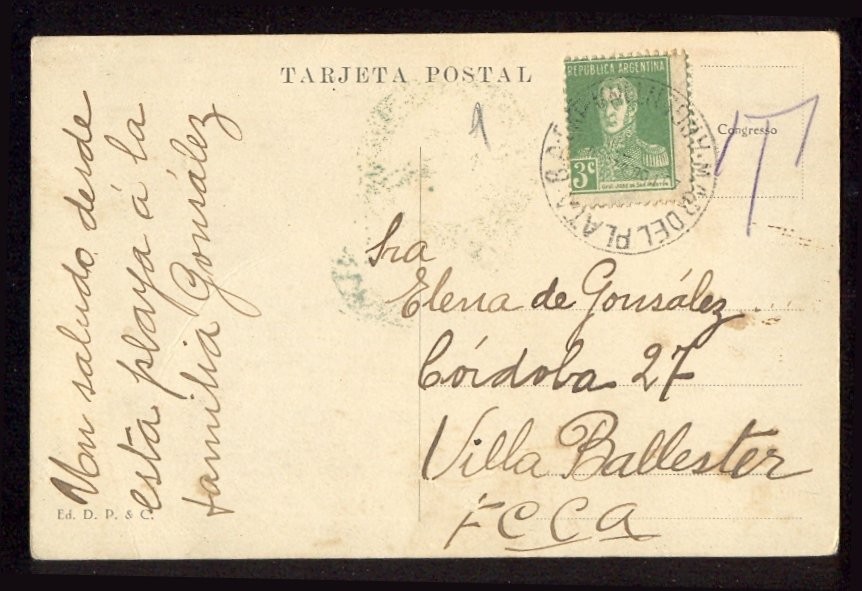 TARJETA POSTAL
REPUBLICA ARGENTINA
3c
GRAL. JOSE DE SAN MARTIN
MAR DEL PLATA
Congresso
1
Un saludo desde
esta playa á la
familia Gonsález
Sra
Elena de Gonsález
Córdoba 27
Villa Ballester
F C C A
Ed. D. P. & C.